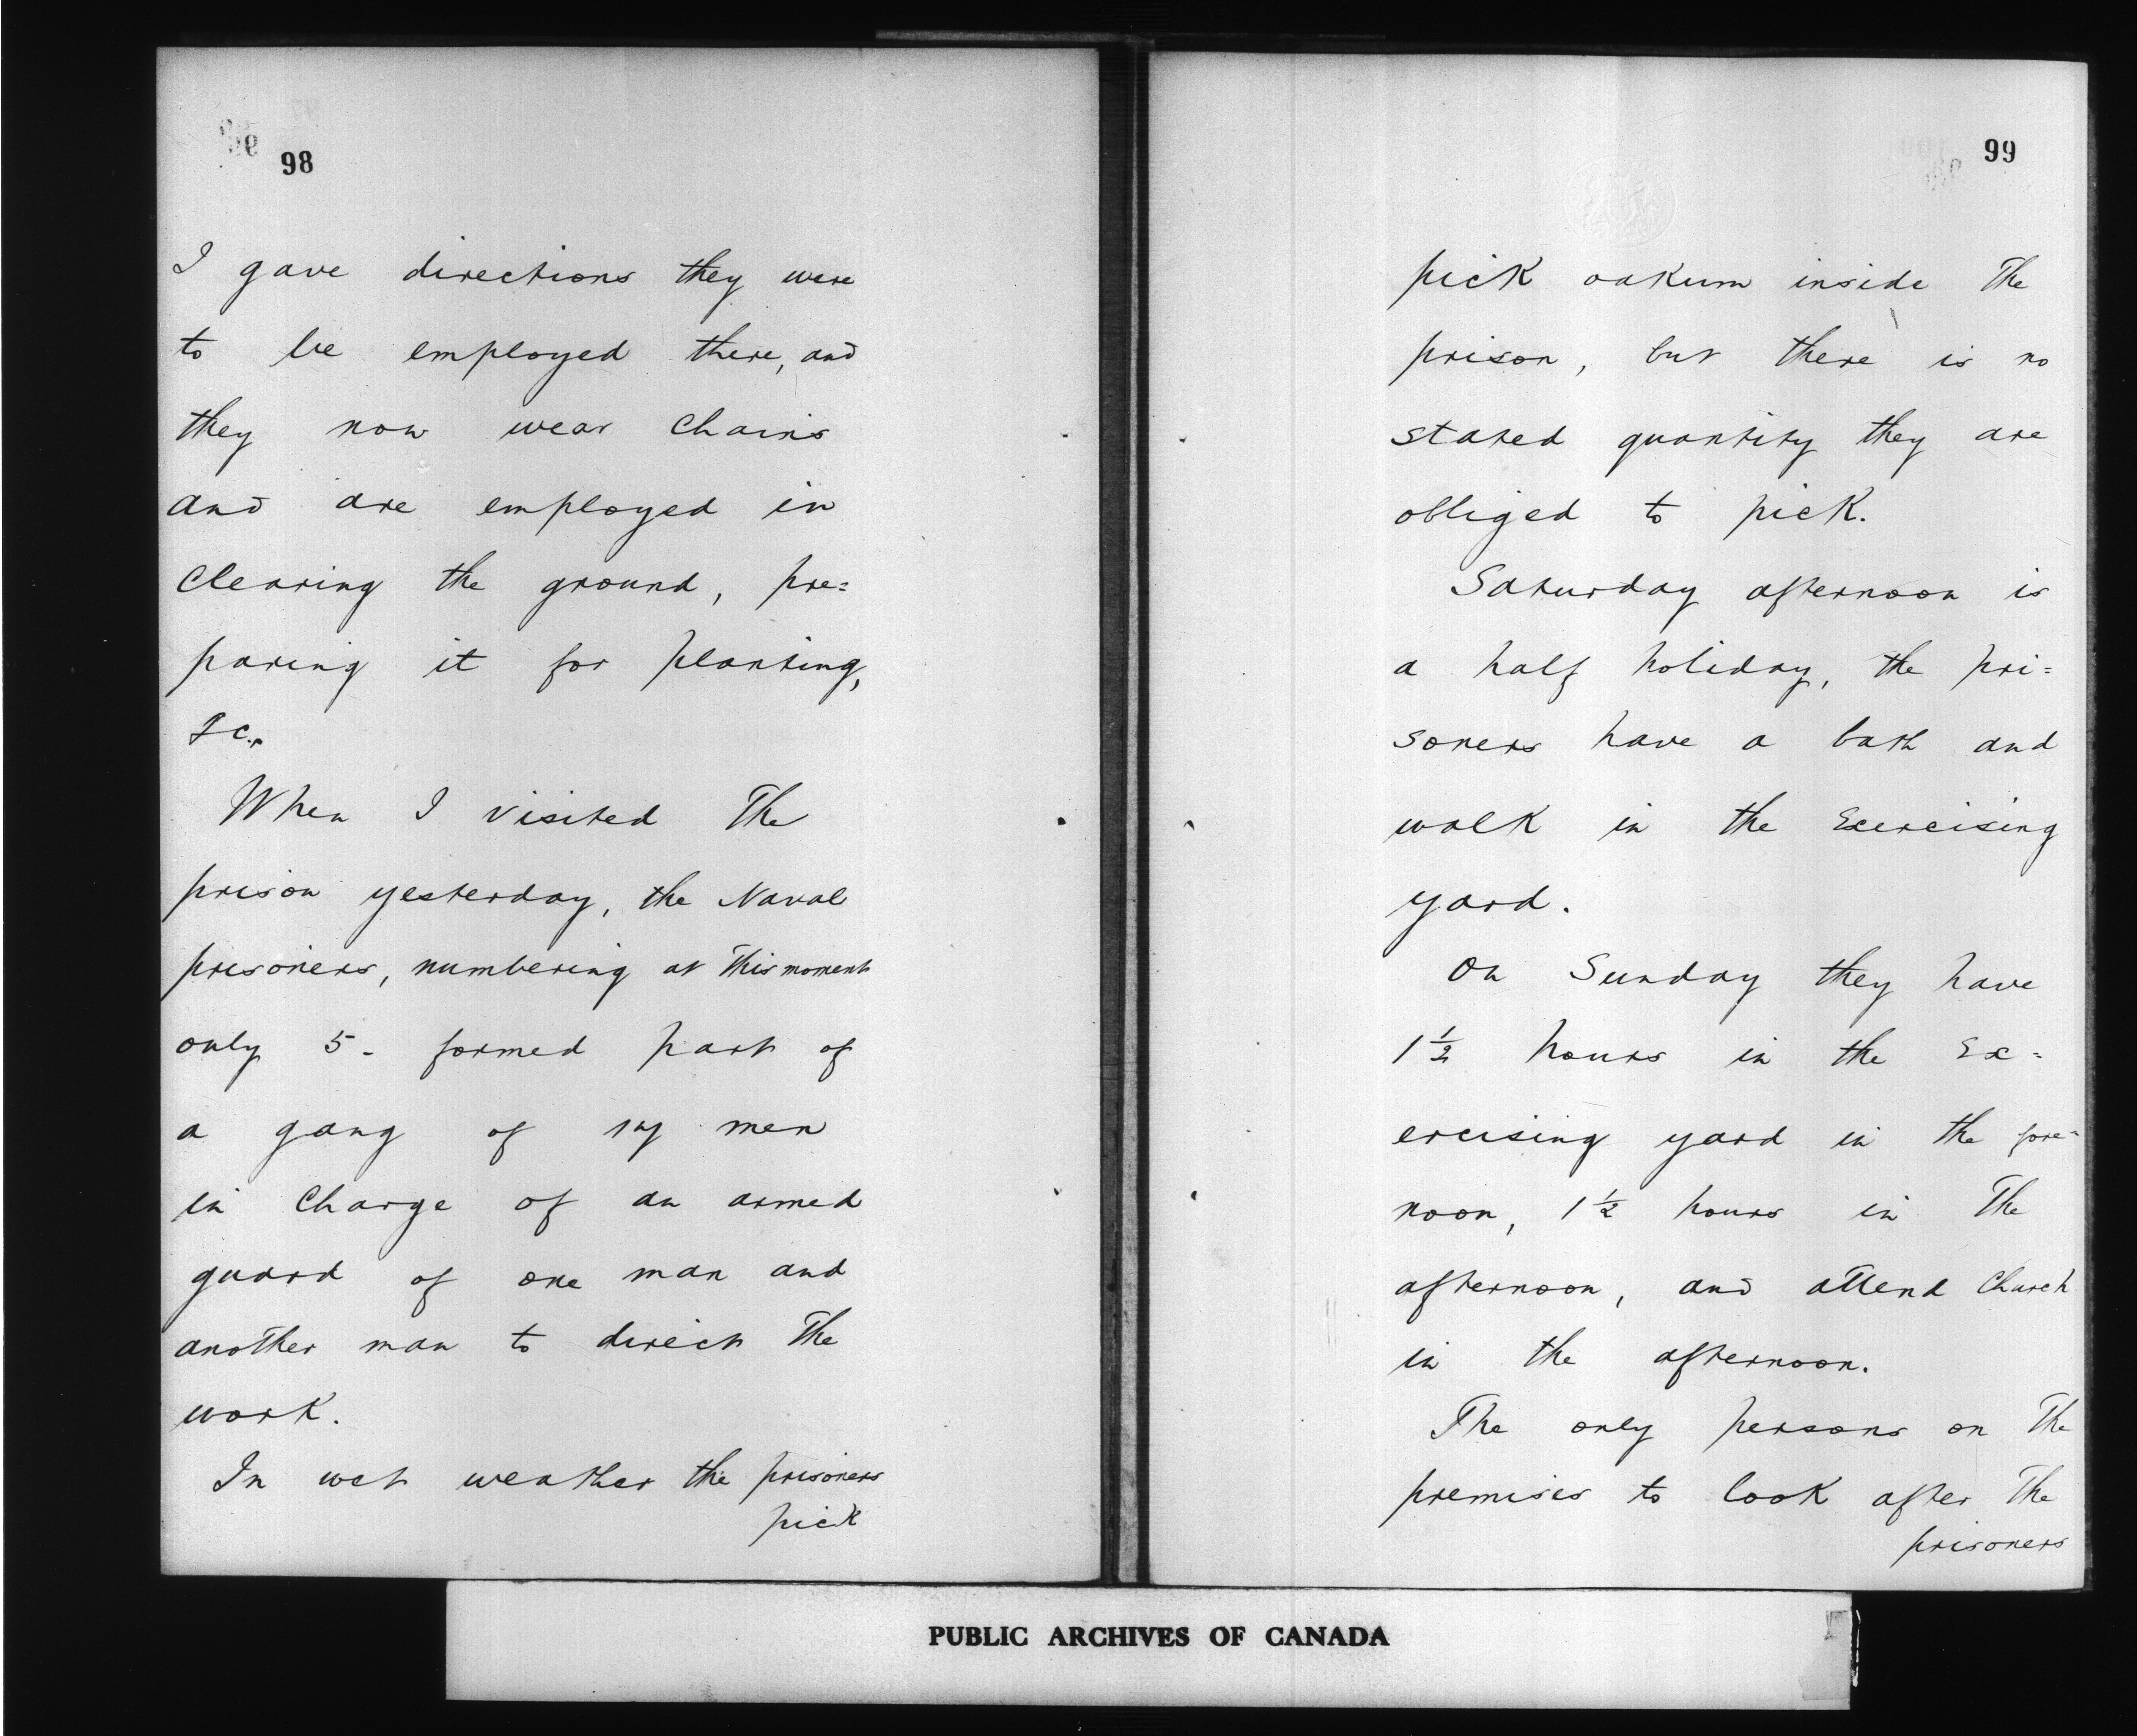 98
I gave directions they were
to be employed there, and
they now wear Chains
and are employed in
Clearing the ground, pre=
paring it for planting,
&c.,
When I visited The
prison yesterday, the Naval
prisoners, numbering at This moment
only 5 - formed part of
a gang of men
in Charge of an armed
guard of one man and
another man to direct The
work.
In wet weather the prisoners
pick
99
pick oakum inside The
prison, but there is no
stated quantity they are
obliged to pick.
Saturday afternoon is
a half holiday, the pri=
soners have a bath and
walk in the Exercising
yard.
On Sunday they have
1½ hours in the Ex=
ercising yard in the fore=
noon, 1½ hours in The
afternoon, and attend Church
in the afternoon.
The only persons on The
premises to look after The
prisoners
PUBLIC ARCHIVES OF CANADA